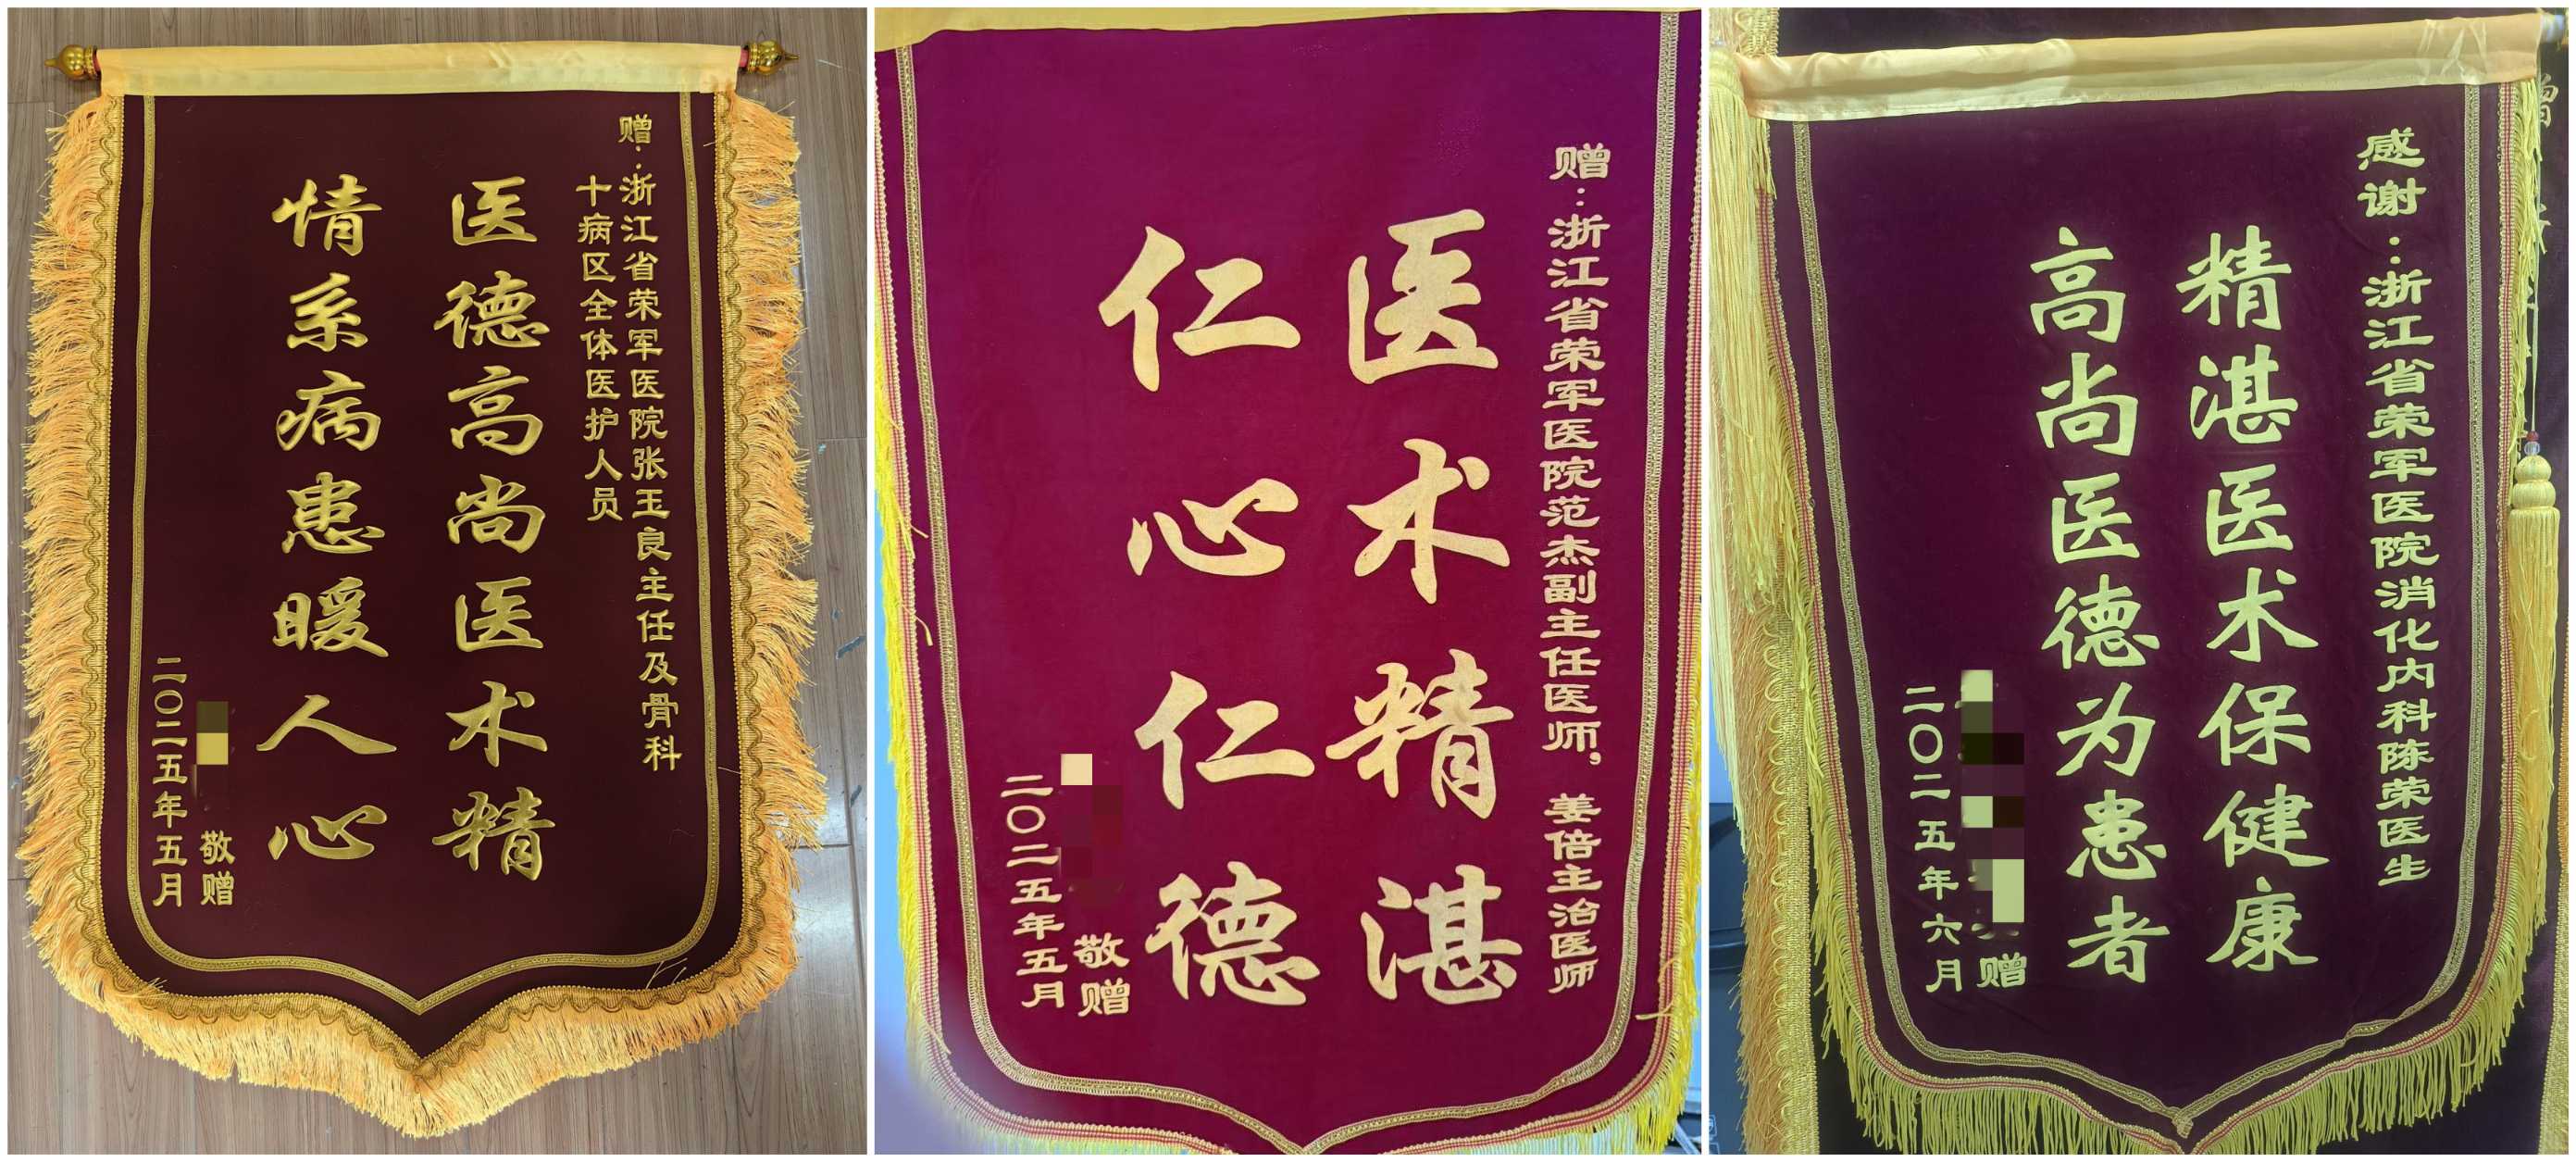 赠：浙江省荣军医院张玉良主任及骨科
十病区全体医护人员
医德高尚医术精
情系病患暖人心
敬赠
二〇二五年五月
赠：浙江省荣军医院范杰副主任医师，姜倍主治医师
医术精湛
仁心仁德
敬赠
二〇二五年五月
感谢：浙江省荣军医院消化内科陈荣医生
精湛医术保健康
高尚医德为患者
赠
二〇二五年六月